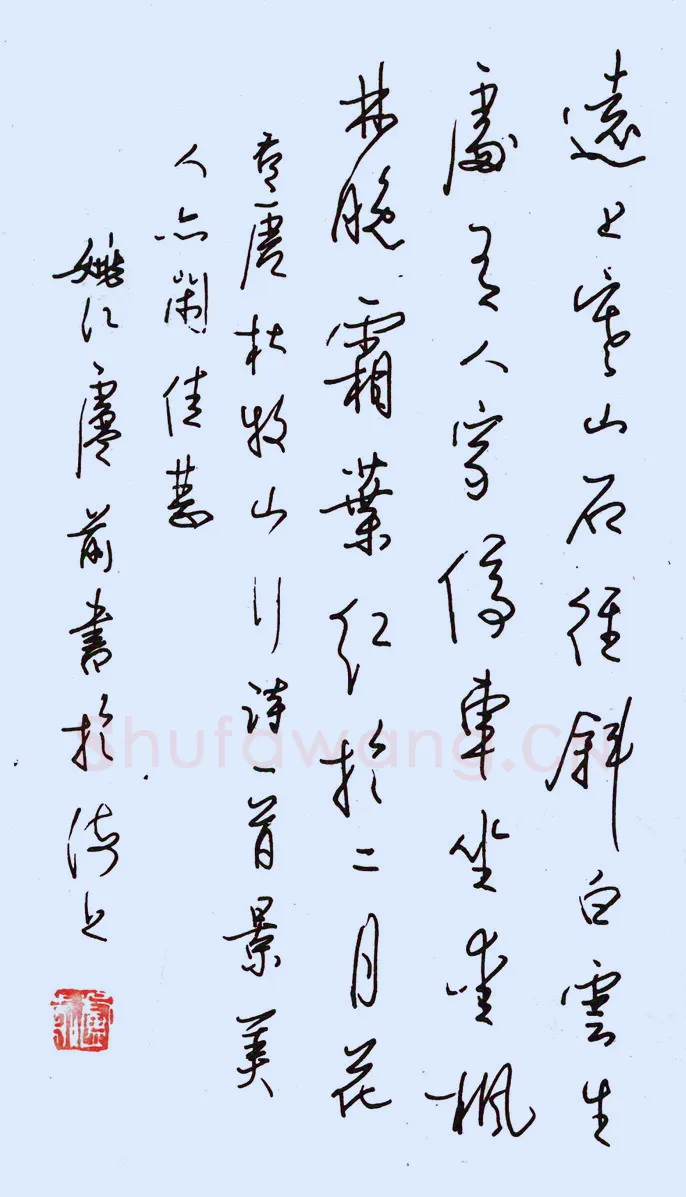 遠上寒山石徑斜白雲生
處有人家停車坐愛楓
林晚霜葉紅於二月花
唐杜牧山行詩一首景美
人亦佳
姚江前書於滬上
Shufawang.CN